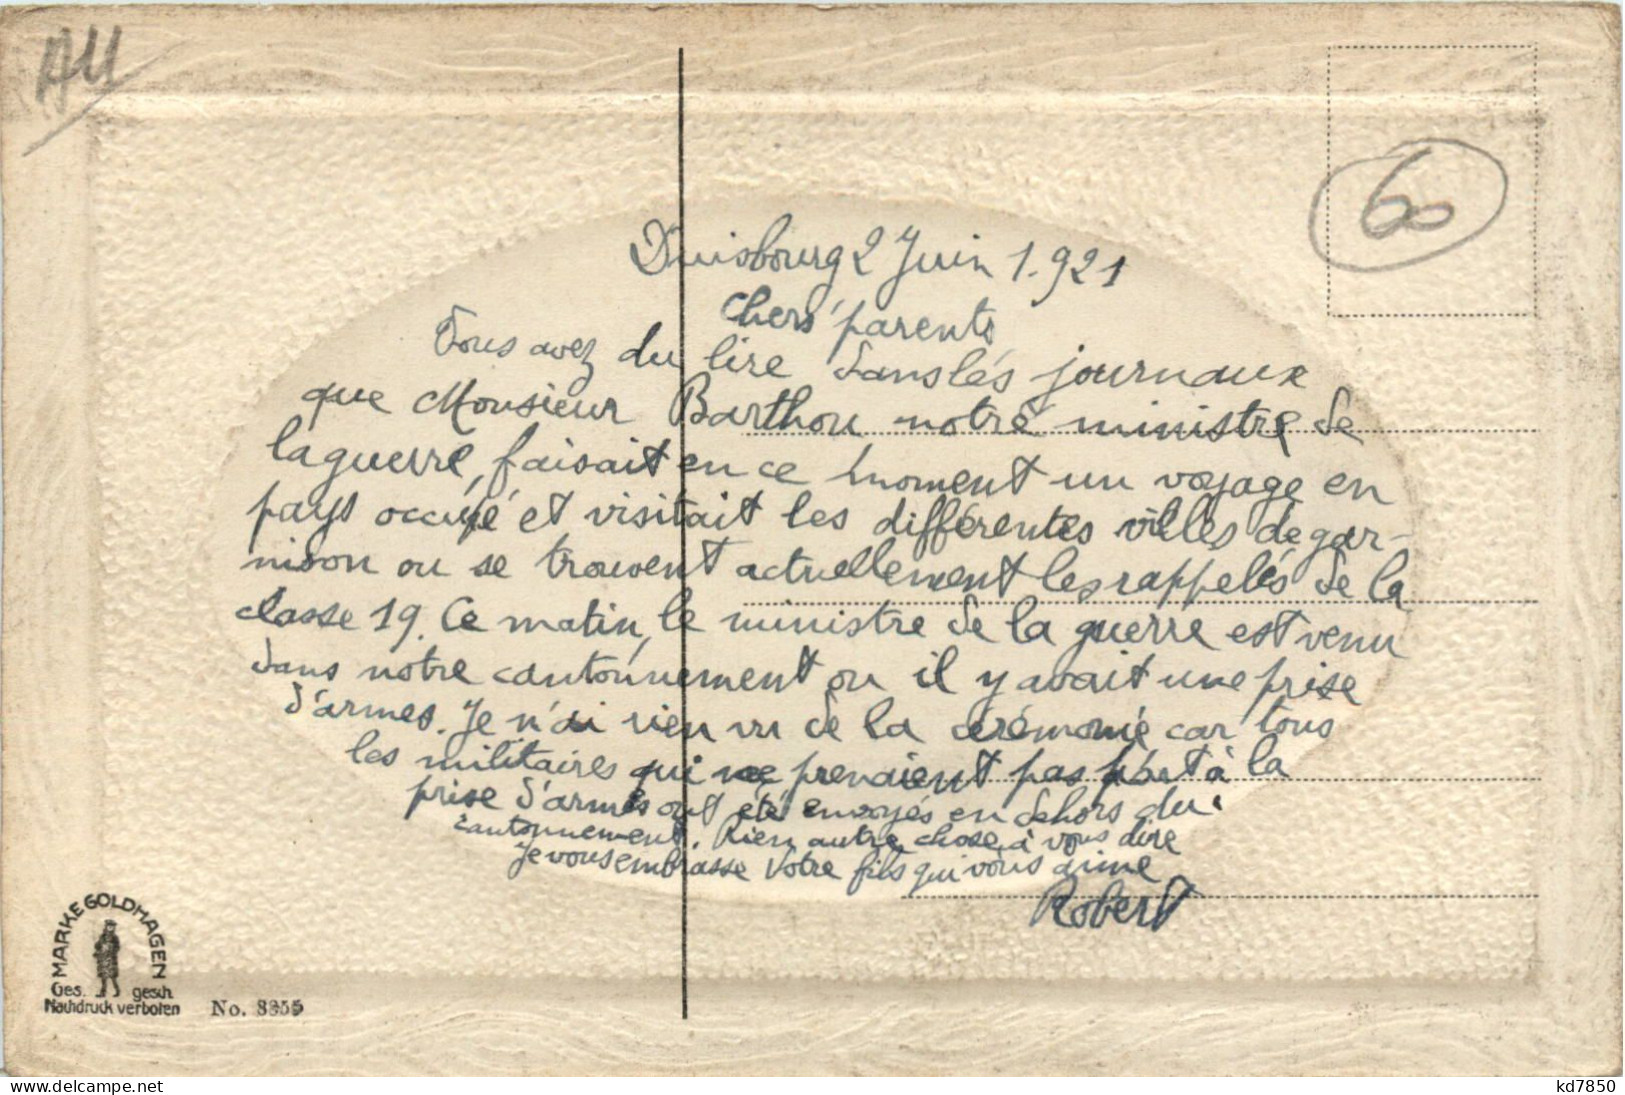 AU
60
Duisbourg 2 Juin 1.921
Chers parents
Vous avez du lire dans les journaux
que Monsieur Barthou notre ministre de
la guerre, faisait en ce moment un voyage en
pays occupé et visitait les différentes villes de gar-
nison ou se trouvent actuellement les rappelés de la
classe 19. Ce matin, le ministre de la guerre est venu
dans notre cantonnement ou il y avait une prise
d'armes. Je n'ai rien vu de la cérémonie car tous
les militaires qui ne prenaient pas part à la
prise d'armes ont été envoyés en dehors du
cantonnement. Rien autre chose à vous dire
Je vous embrasse Votre fils qui vous aime
Robert
MARKE GOLDHAGEN
Ges. gesch.
Nachdruck verboten
No. 3355
www.delcampe.net
kd7850